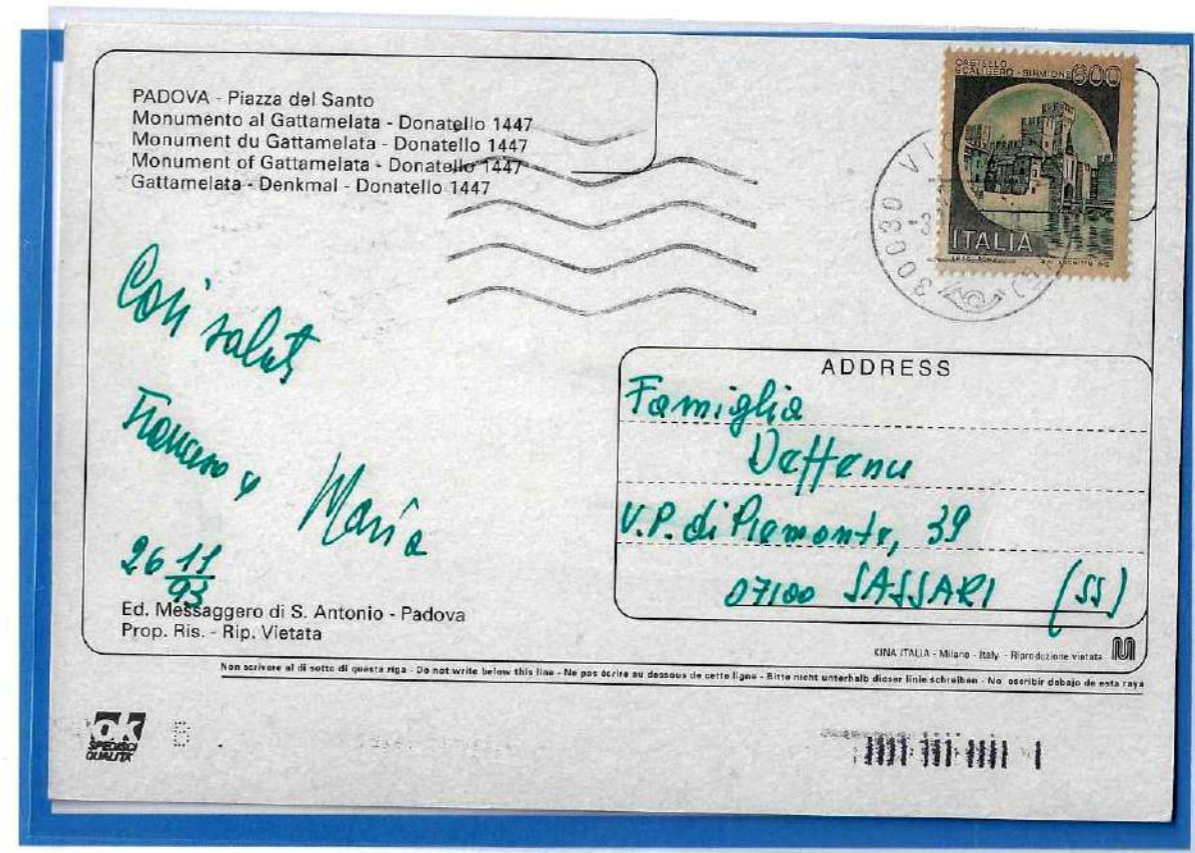 PADOVA - Piazza del Santo
Monumento al Gattamelata - Donatello 1447
Monument du Gattamelata - Donatello 1447
Monument of Gattamelata - Donatello 1447
Gattamelata - Denkmal - Donatello 1447
CASTELLO
SCALIGERO - SIRMIONE 600
ITALIA
30030
Cari saluti
Francesco e
Maria
26 11/93
ADDRESS
Famiglia
Deffenu
V.P. di Piemonte, 39
07100 SASSARI (SS)
Ed. Messaggero di S. Antonio - Padova
Prop. Ris. - Rip. Vietata
KINA ITALIA - Milano - Italy - Riproduzione vietata
Non scrivere al di sotto di questa riga - Do not write below this line - Ne pas écrire au dessous de cette ligne - Bitte nicht unterhalb dieser linie schreiben - No escribir debajo de esta raya
ok
SPEDISCI
QUALITÀ